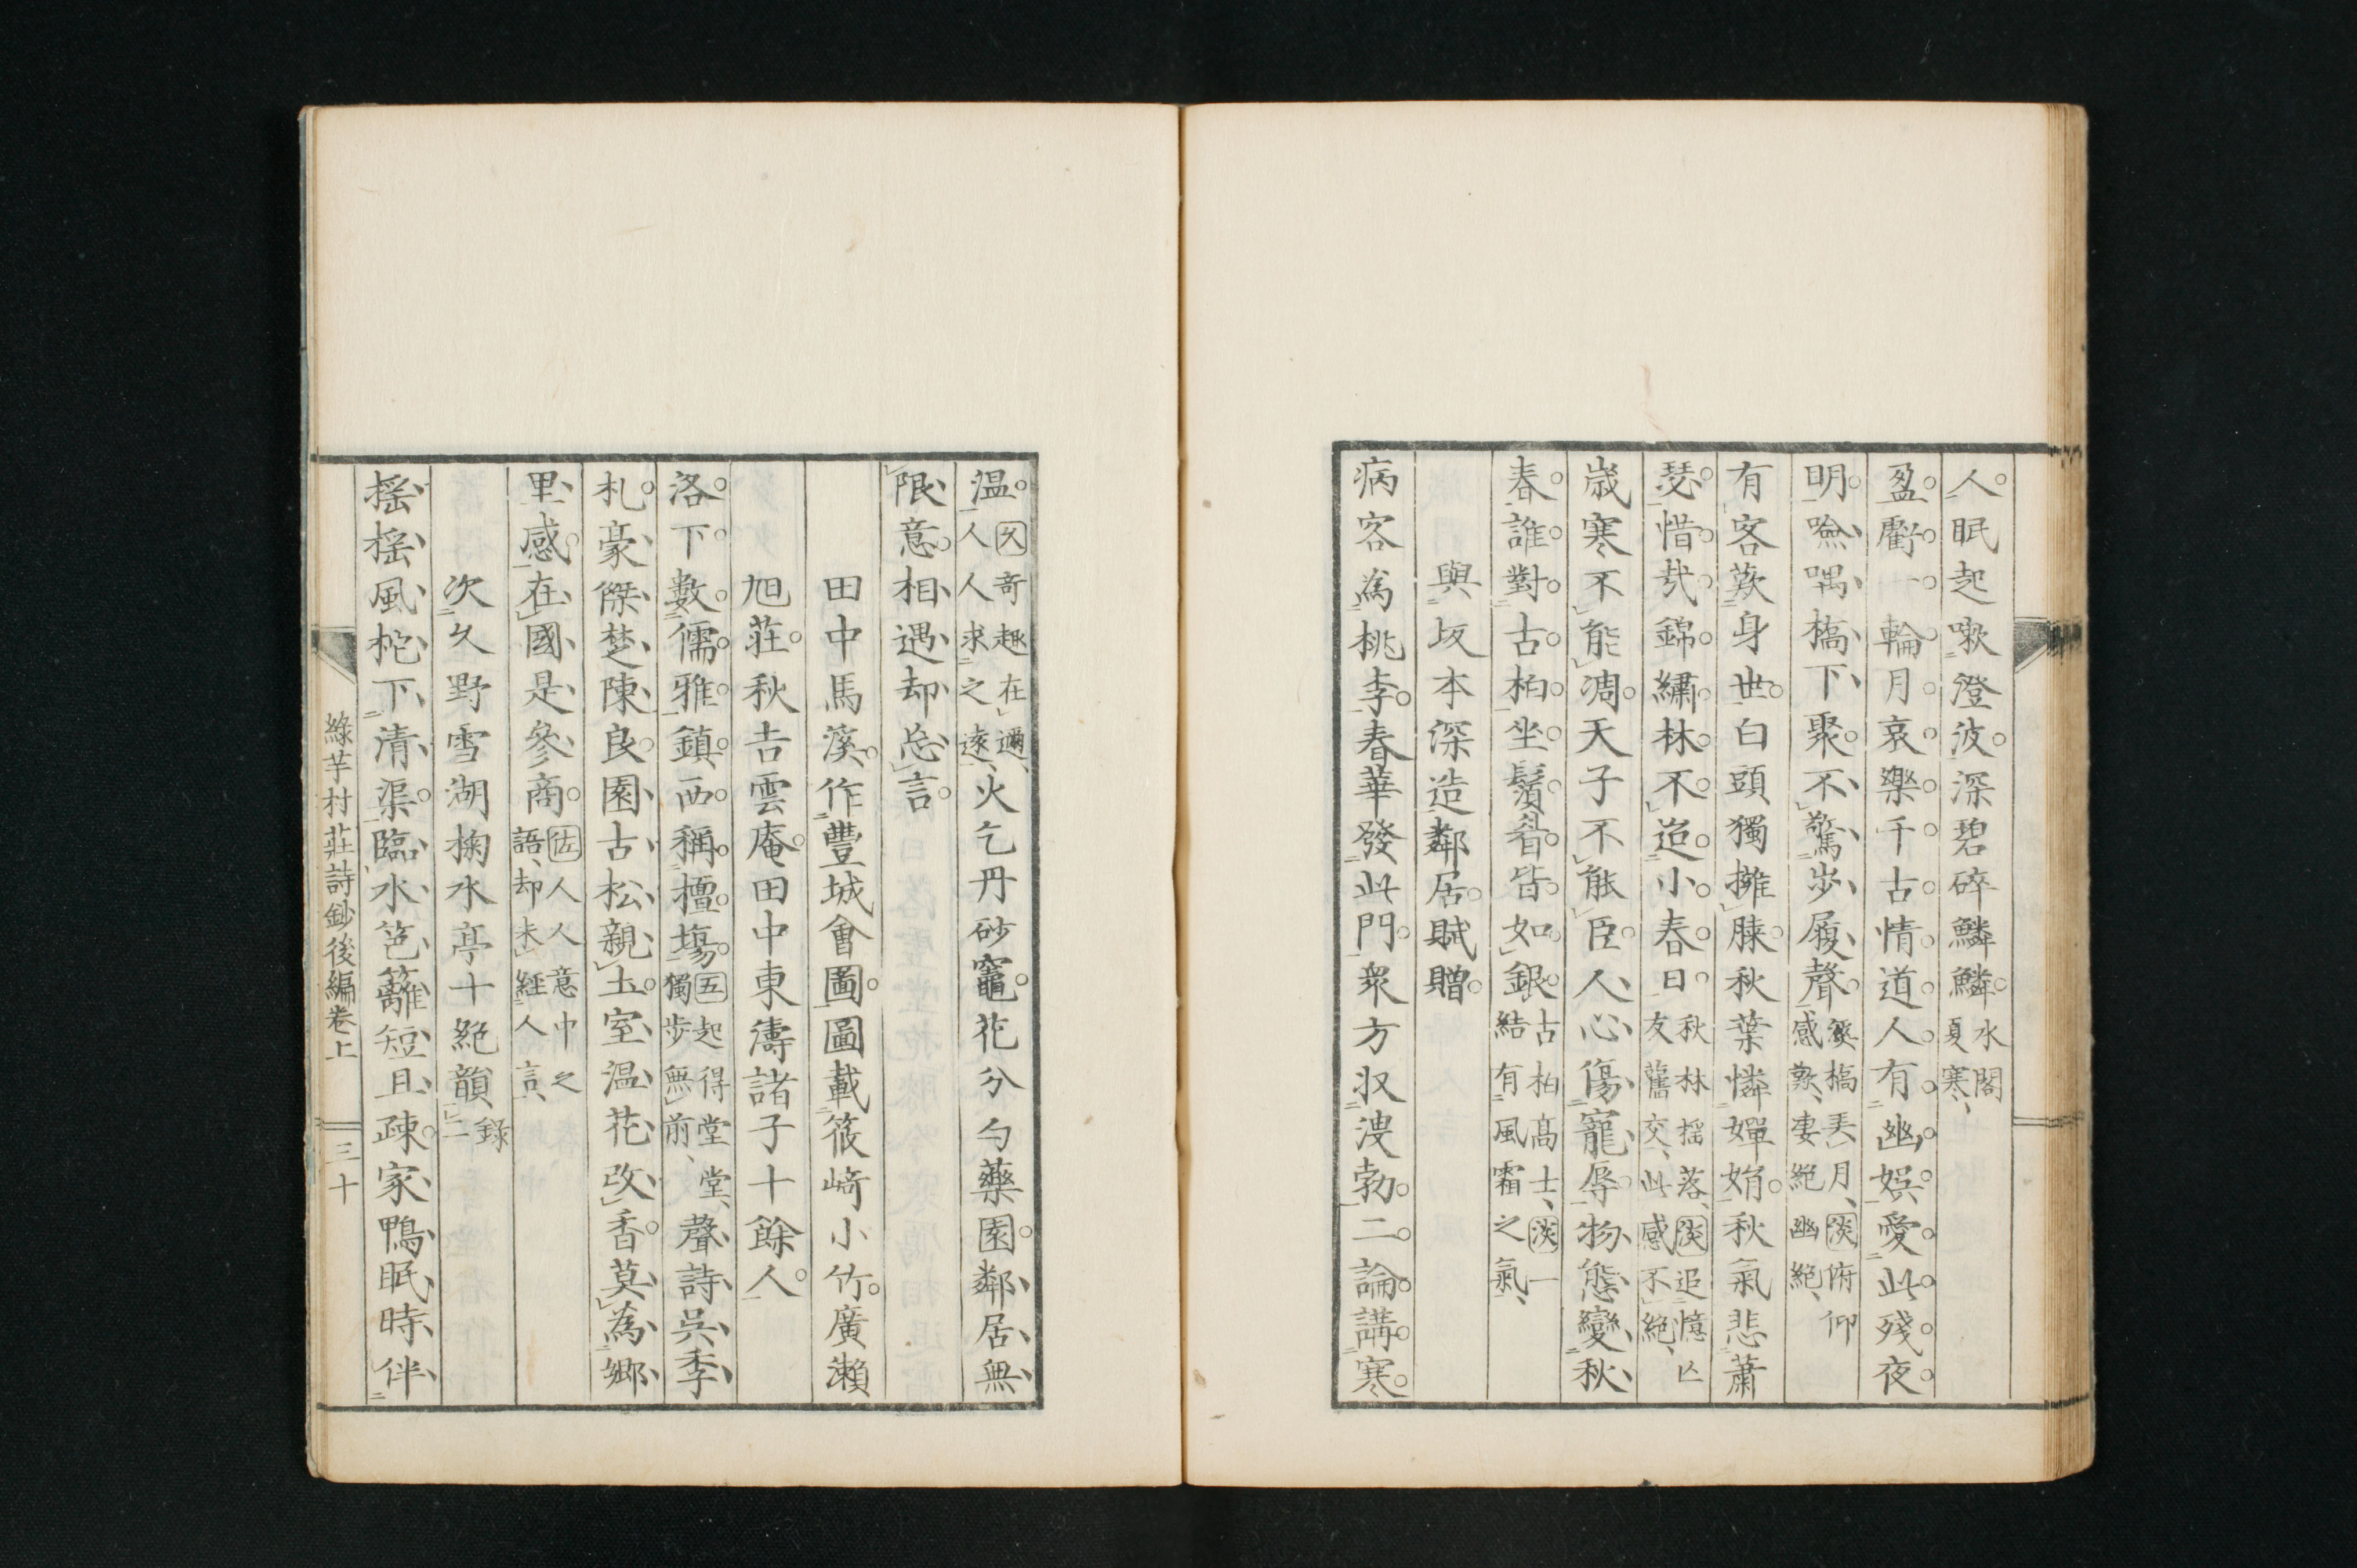 人眠起嗽澄波深碧碎鱗鱗水閣夏寒
盈虧一輪月哀樂千古情道人有幽娯愛此殘夜
明噞喁橋下聚不驚步履聲溪橋弄月淡俯仰感歎妻絕幽絕
有客歎身世白頭獨擁膝秋葉憐嬋娟秋氣悲蕭
瑟惜哉錦繡林不迨小春日秋林搖落淡追憶亾友舊交此感不絕
歲寒不能凋天子不能臣人心傷寵辱物態變秋
春誰對古柏坐鬚眉皆如銀古柏高士淡一結有風霜之氣
與坂本深造鄰居賦贈
病客為桃李春華發此門衆方収溲勃二論講寒
温攵奇趣在邇人人求之遠火乞丹砂竈花分勺藥園鄰居無
限意相遇却忘言
田中馬溪作豐城會圖圖載筱﨑小竹廣瀨
旭荘秋吉雲庵田中東濤諸子十餘人
洛下數儒雅鎮西稱檀場五起得堂堂獨步無前聲詩吳季
札豪傑楚陳良園古松親土室温花改香莫為鄉
里感在國是參商佐人人意中之語却未經人言
次久野雪湖掬水亭十絕韻錄二
搖搖風柁下清渠臨水笆籬短且疎家鴨眠時伴
綠芋村莊詩鈔後編卷上
三十